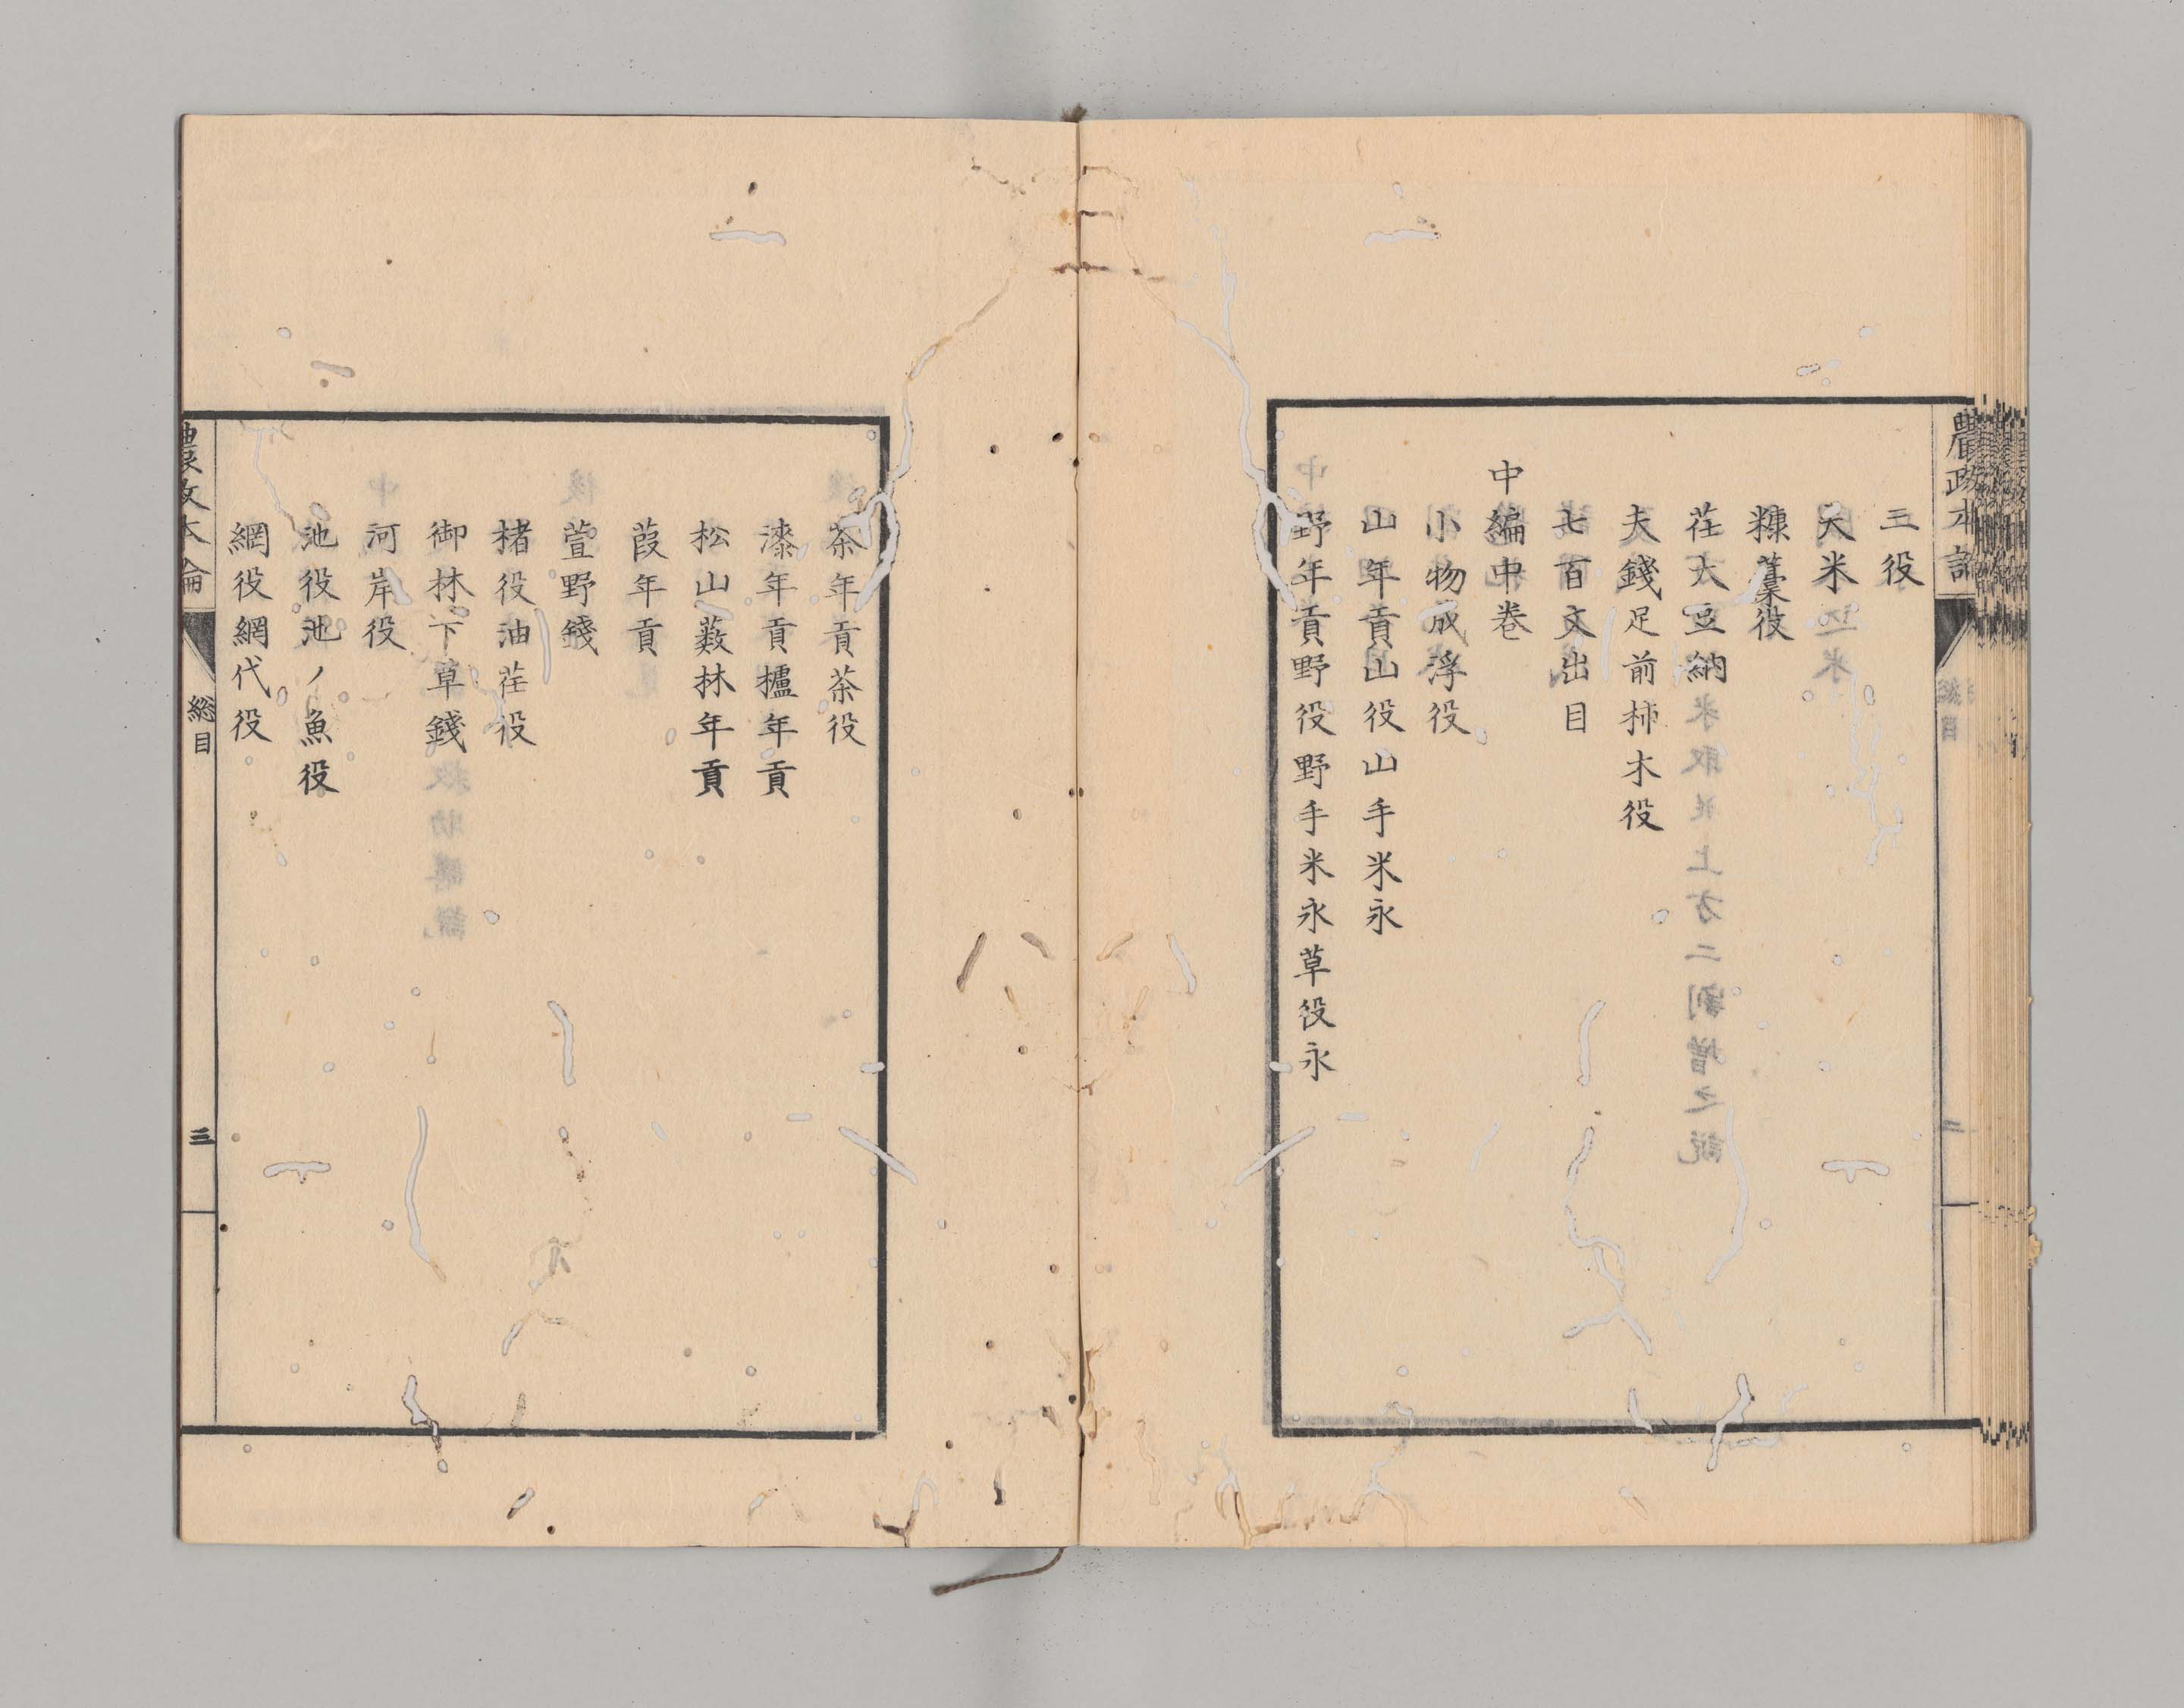 農政本論
三役
夫米
糠藁役
荏大豆納
夫錢足前柿木役
七百文出目
中編中卷
小物成浮役
山年貢山役山手米永
野年貢野役野手米永草役永
茶年貢茶役
漆年貢櫨年貢
松山薮林年貢
葭年貢
萱野錢
楮役油荏役
御林下草錢
河岸役
池役池ノ魚役
網役網代役
農政本論
総目
三